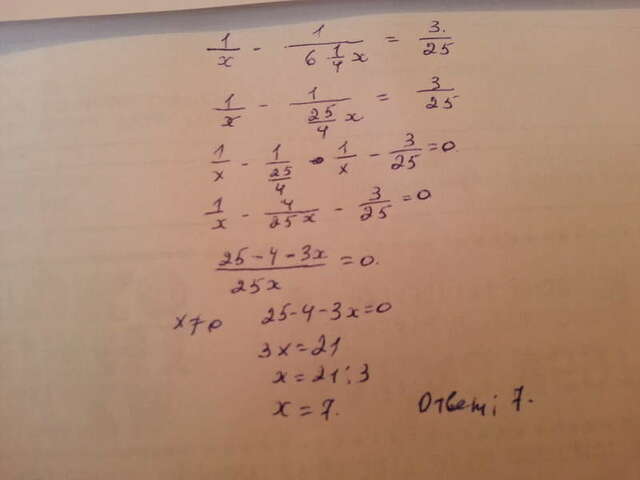 1/x - 1/(6 1/4 x) = 3/25
1/x - 1/(25/4 x) = 3/25
1/x - 1/(25/4) · 1/x - 3/25 = 0
1/x - 4/(25x) - 3/25 = 0
(25-4-3x)/(25x) = 0.
x≠0 25-4-3x=0
3x=21
x=21:3
x=7. Ответ: 7.